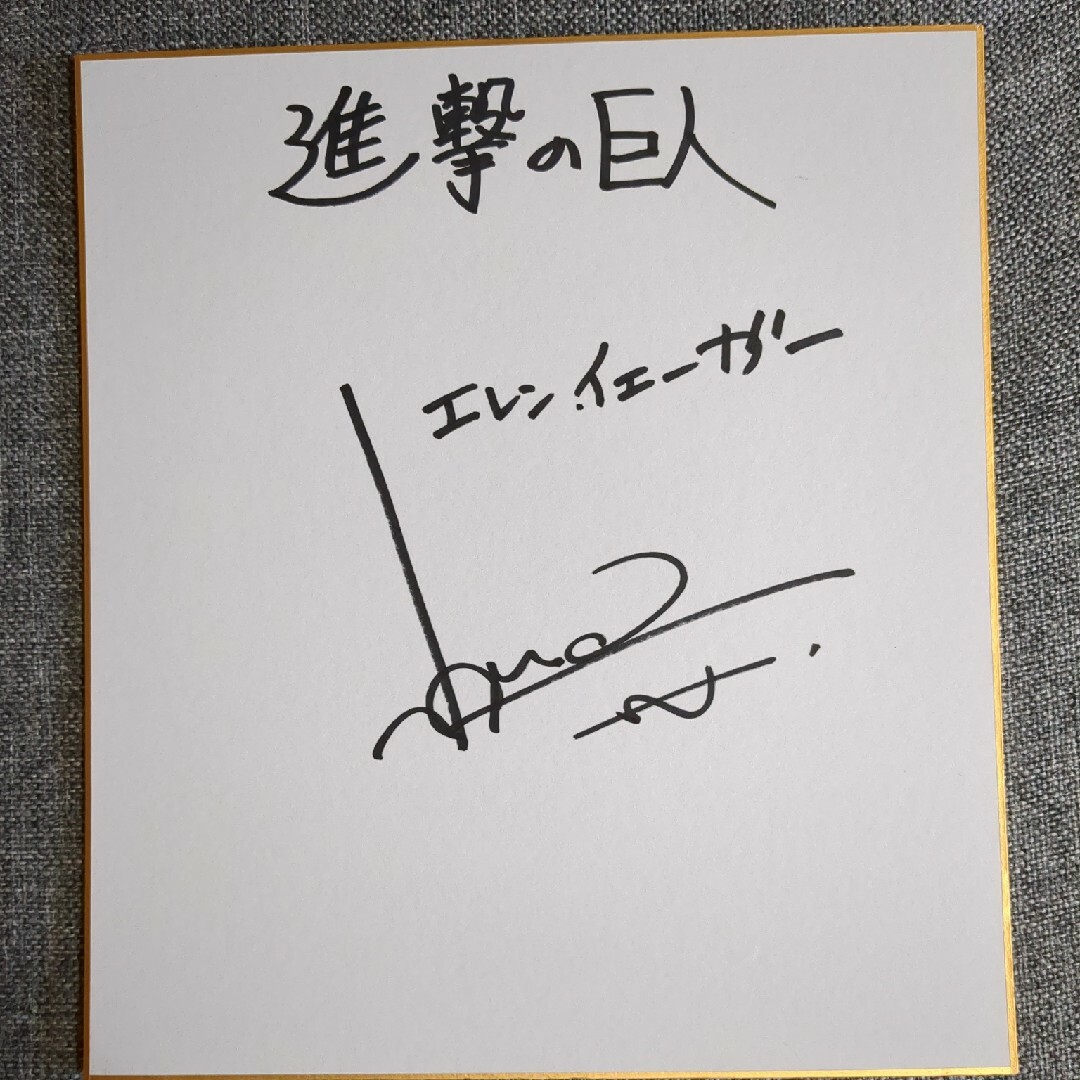 進撃の巨人
エレン.イェーガー